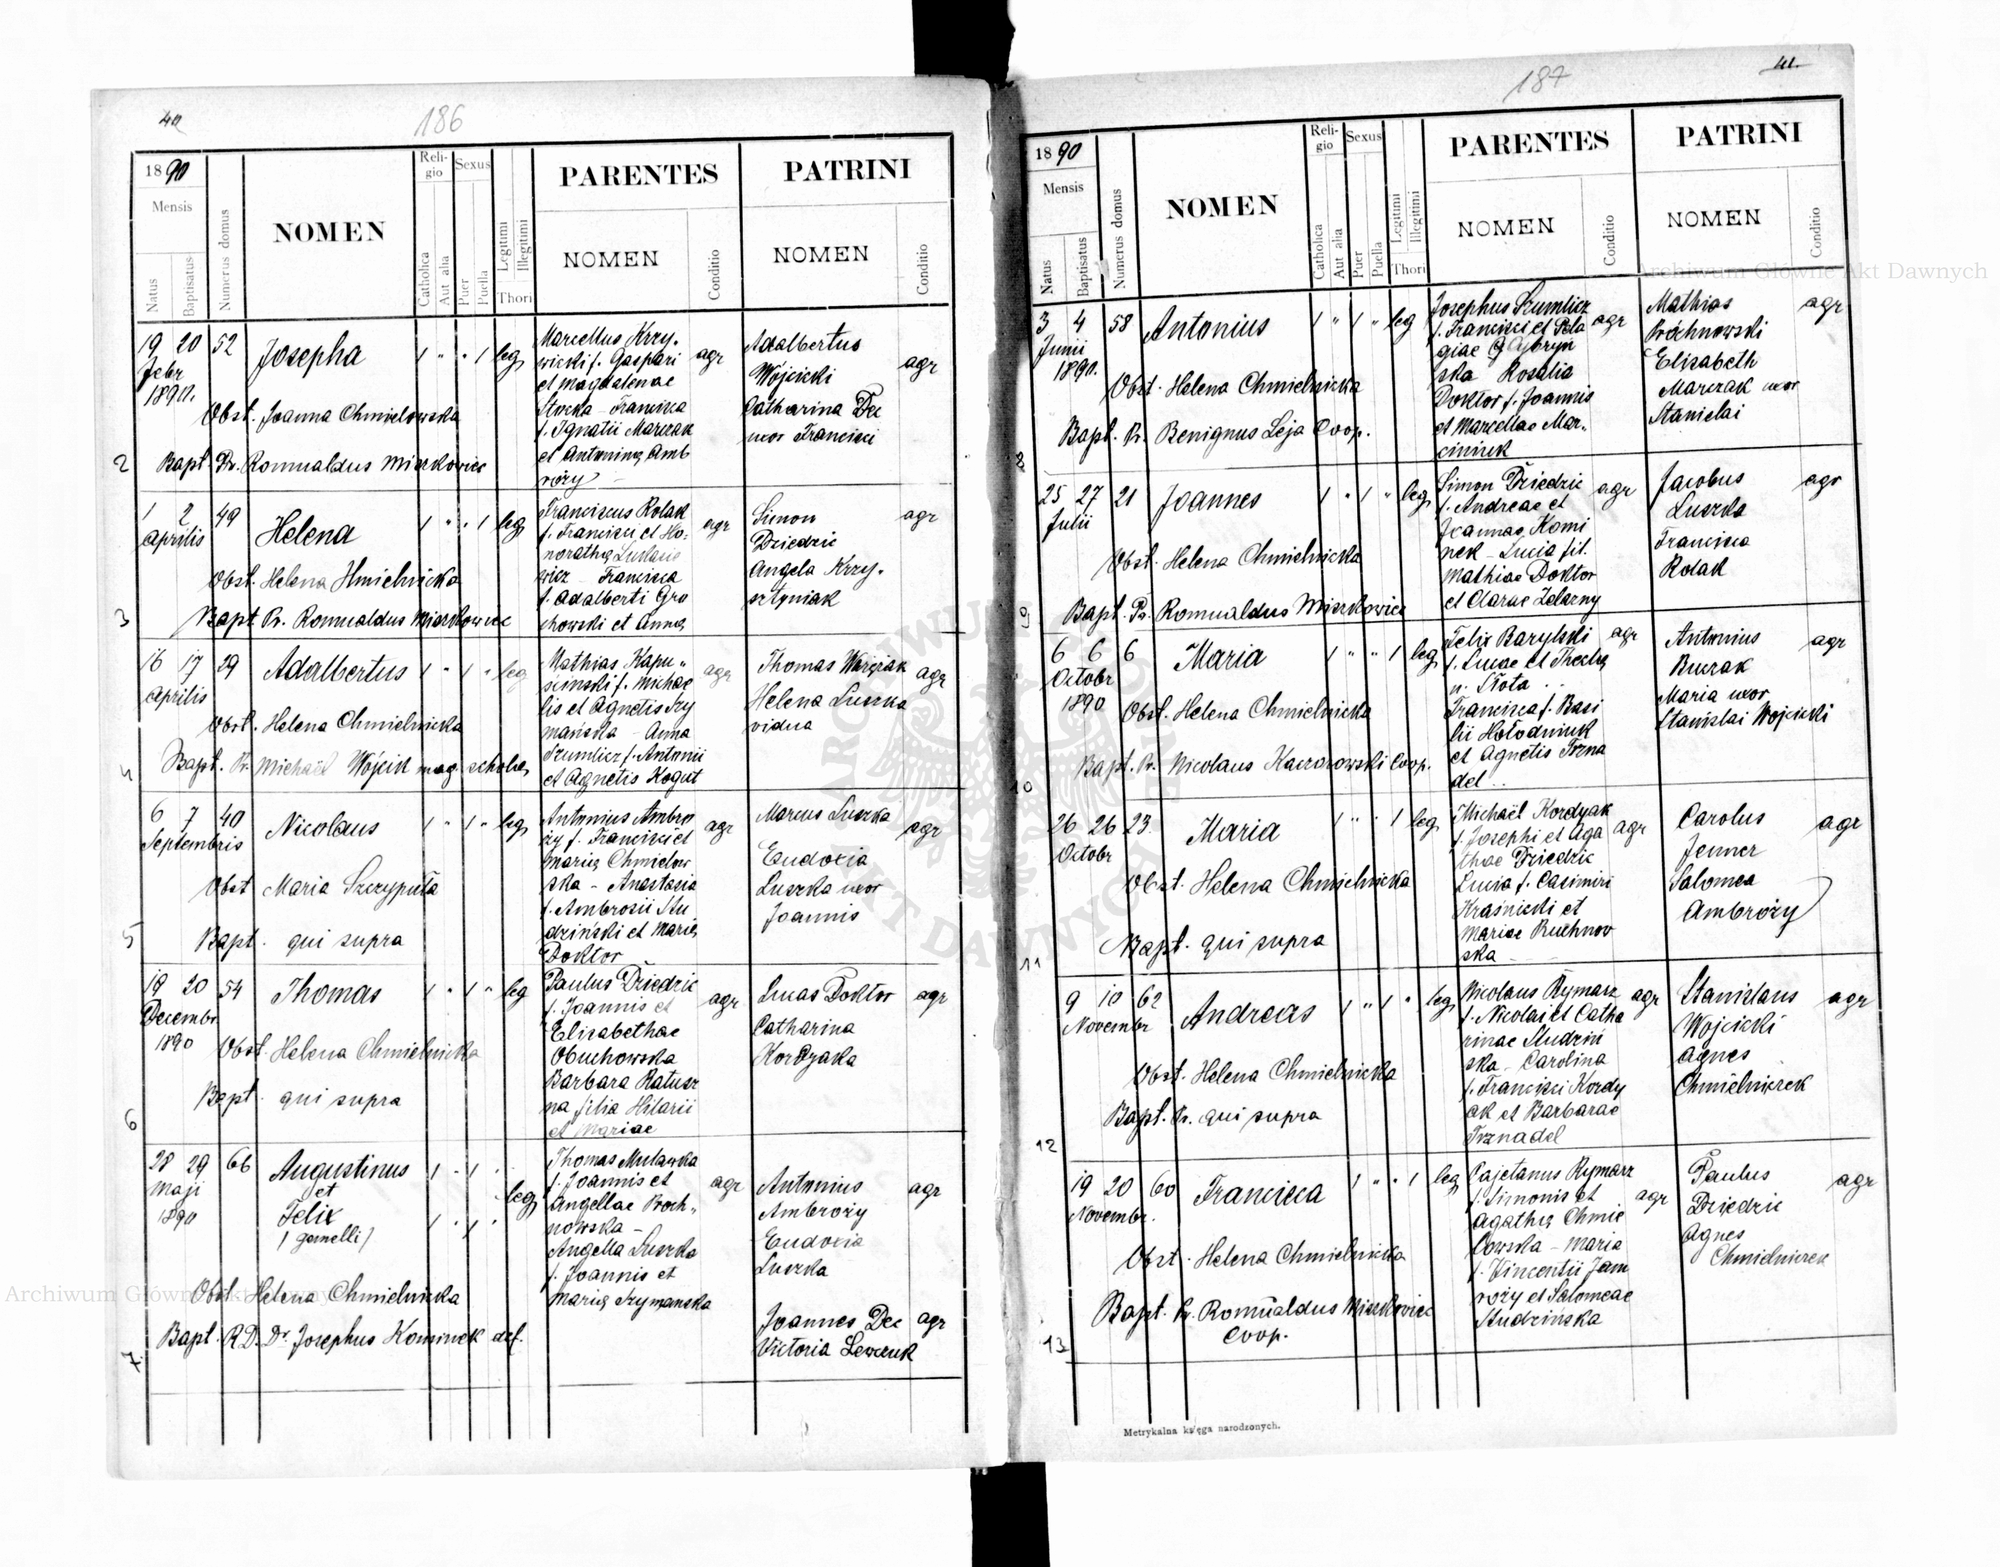 40
186
1890
Mensis
Natus
Baptisatus
Numerus domus
NOMEN
Reli-
gio
Catholica
Aut alia
Sexus
Puer
Puella
Legitimi
Illegitimi
Thori
PARENTES
NOMEN
Conditio
PATRINI
NOMEN
Conditio
19 20 52 Josepha 1 " " 1 leg
Febr
1890.
Obst. Joanna Chmielowska
2 Bapt Pr. Romualdus Mierkowicz
Marcellus Krzy-
wicki f. Gaspari
et Magdalenae
Stocka - Francisca
f. Ignatii Marczak
et Antoninę Amb
roży
agr
Adalbertus
Wójcicki
Catharina Dec
uxor Francisci
agr
1 2 49 Helena 1 " " 1 leg
Aprilis
Obst. Helena Hmielnicka
3 Bapt Pr. Romualdus Mierkowicz
Franciscus Rolak
f. Francisci et Ho-
norathę
wicz - Francisca
f. Adalberti Gro
chowski et Annę
agr
Simon
Dziedzic
Angela Krzy-
sztyniak
agr
16 17 29 Adalbertus 1 " 1 " leg
Aprilis
Obst. Helena Chmielnicka
4 Bapt. Pr. Michaël Wójcik mag. scholae
Mathias Kapu-
ściński f. Michae
lis et Agnetis Szy
mańska - Anna
Szumlicz f. Antonii
et Agnetis Kogut
agr
Thomas
Helena Luszka
vidua
agr
6 7 40 Nicolaus 1 " 1 " leg
Septembris
Obst Maria Szczyputa
5 Bapt. qui supra
Antonius Ambro
ży f. Francisci et
Marię Chmielow
ska - Anastasia
f. Ambrosii Stu
dziński et Marię
Doktor
agr
Marcus Luszka
Eudoxia
Luszka uxor
Joannis
agr
19 20 54 Thomas 1 " 1 " leg
Decembr
1890
Obst. Helena Chmielnicka
6 Bapt. qui supra
Paulus Dziedzic
f. Joannis et
Elisabethae
Obuchowska
Barbara Ratusz
na filia Hilarii
et Mariae
agr
Lucas Doktor
Catharina
Kordzaka
agr
28 29 66 Augustinus 1 " 1 "
Maji
1890
et
Felix 1 " 1 "
/gemelli/
leg
Obst Helena Chmielnicka
7. Bapt. R.D. Dr. Josephus Kominek def.
Thomas Mulawka
f. Joannis et
Angellae Proch-
nowska -
Angella Luszka
f. Joannis et
Marię Szymanska
agr
Antonius
Ambroży
Eudoxia
Luszka
agr
Joannes Dec agr
Victoria Lewczuk
187
41.
1890
Mensis
Natus
Baptisatus
Numerus domus
NOMEN
Reli-
gio
Catholica
Aut alia
Sexus
Puer
Puella
Legitimi
Illegitimi
Thori
PARENTES
NOMEN
Conditio
PATRINI
NOMEN
Conditio
3 4 58 Antonius 1 " 1 " leg
Junii
1890.
Obst. Helena Chmielnicka
8 Bapt. Pr. Benignus Leja Coop.
Josephus Szumlicz
f. Francisci et Pela
giae
ska Rosalia
Doktor f. Joannis
et Marcellae Mar-
ciniuk
agr
Mathias
Próchnowski
Elisabeth
Marczak uxor
Stanislai
agr
25 27 21 Joannes 1 " 1 " leg
Julii
Obst. Helena Chmielnicka
9 Bapt. Pr. Romualdus Mierkowicz
Simon Dziedzic
f. Andreae et
Joannae Komi
nek - Lucia fil.
Mathiae Doktor
et Clarae Zelazny
agr
Jacobus
Luszka
Francisca
Rolak
agr
6 6 6 Maria 1 " " 1 leg
Octobr
1890
Obst. Helena Chmielnicka
10 Bapt. Pr. Nicolaus Kaczorowski Coop.
Felix Barylski
f. Lucae et Theclę
n. Słota
Francisca f. Basi
lii Hołodniuk
et Agnetis Trzna
del
agr
Antonius
Buczak
Maria uxor
Stanislai Wojcicki
agr
26 26 23. Maria 1 " " 1 leg
Octobr
Obst. Helena Chmielnicka
11 Bapt. qui supra
Michaël Kordyak
f. Josephi et Aga
thae Dziedzic
Lucia f. Casimiri
Kraśnicki et
Mariae Ruchnov
ska
agr
Carolus
Jenner
Salomea
Ambroży
agr
9 10 62 Andreas 1 " 1 " leg
Novembr
Obst. Helena Chmielnicka
12 Bapt. Pr. qui supra
Nicolaus Rymarz
f. Nicolai et Catha
rinae Studziń
ska - Carolina
f. Francisci Kordy
ak et Barbarae
Trznadel
agr
Stanislaus
Wojcicki
Agnes
Chmielniczek
agr
19 20 60 Francisca 1 " " 1 leg
Novembr.
Obst. Helena Chmielnicka
Bapt. Pr. Romualdus Mierkowicz
13 Coop.
Cajetanus Rymarz
f. Simonis et
Agathę Chmie
lowska - Maria
f. Vincentii Jam
roży et Salomeae
Studzińska
agr
Paulus
Dziedzic
Agnes
Chmielniczek
agr
Metrykalna księga narodzonych.
Archiwum Główne Akt Dawnych
Archiwum Główne Akt Dawnych
ARCHIWUM GŁÓWNE AKT DAWNYCH